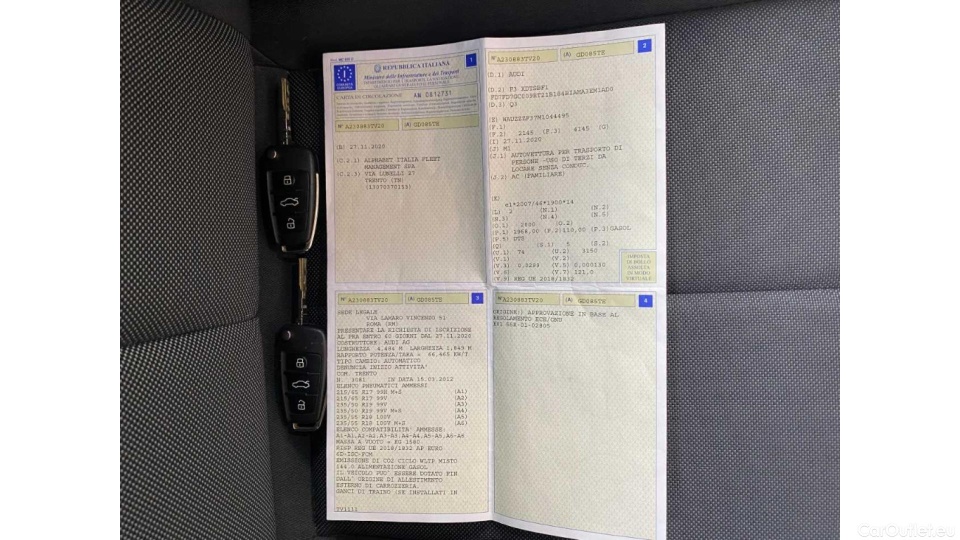 1
REPUBBLICA ITALIANA
Ministero delle Infrastrutture e dei Trasporti
CARTA DI CIRCOLAZIONE AN 0812731
A230883TV20 (A) GD085TE
(B) 27.11.2020
(C.2.1) ALPHABET ITALIA FLEET
MANAGEMENT SPA
(C.2.3) VIA LUNELLI 27
TRENTO (TN)
2
A230883TV20 (A) GD085TE
(D.1) AUDI
(D.2) F3
(D.3) Q3
(E)
(F.1)
(F.2) 2145 (F.3) 4145 (G)
(I) 27.11.2020
(J) M1
(J.1) AUTOVETTURA PER TRASPORTO DI
PERSONE -USO DI TERZI DA
LOCARE SENZA CONDUC.
(J.2) AC (FAMILIARE)
(K)
e1*2007/46*1900*14
(L) 2 (N.1) (N.2)
(N.3) (N.4) (N.5)
(O.1) (O.2)
(P.1) 1968,00 (P.2)110,00 (P.3)GASOL
(P.5) DTS
(Q) (S.1) 5 (S.2)
(U.1) 74 (U.2)
(V.1) (V.2)
(V.3) (V.5)
(V.6) (V.7) 121,0
(V.9) REG UE 2018/1832
IMPOSTA
DI BOLLO
ASSOLTA
IN MODO
VIRTUALE
3
A230883TV20 (A) GD085TE
SEDE LEGALE
ROMA (RM)
PRESENTARE LA RICHIESTA DI ISCRIZIONE
AL PRA ENTRO 60 GIORNI DAL 27.11.2020
COSTRUTTORE: AUDI AG
LUNGHEZZA 4,484 M LARGHEZZA 1,849 M
RAPPORTO POTENZA/TARA = KW/T
TIPO CAMBIO: AUTOMATICO
DENUNCIA INIZIO ATTIVITA'
COM. TRENTO
N. 3081 IN DATA 15.03.2012
ELENCO PNEUMATICI AMMESSI
215/65 R17 99H M+S (A1)
215/65 R17 99V (A2)
235/50 R19 99V (A3)
235/50 R19 99V M+S (A4)
235/55 R18 100V (A5)
235/55 R18 100V M+S (A6)
ELENCO COMPATIBILITA' AMMESSE:
A1-A1,A2-A2,A3-A3,A4-A4,A5-A5,A6-A6
MASSA A VUOTO = KG 1580
RISP REG UE 2018/1832 AP EURO
6D-ISC-FCM
EMISSIONE DI CO2 CICLO WLTP MISTO
144.0 ALIMENTAZIONE GASOL
IL VEICOLO PUO' ESSERE DOTATO FIN
DALL' ORIGINE DI ALLESTIMENTO
ESTERNO DI CARROZZERIA.
GANCI DI TRAINO (SE INSTALLAT) IN
TV1111
4
A230883TV20 (A) GD085TE
ORIGINE: APPROVAZIONE IN BASE AL
REGOLAMENTO ECE/ONU
E1 55R-01-02805
CarOutlet.eu